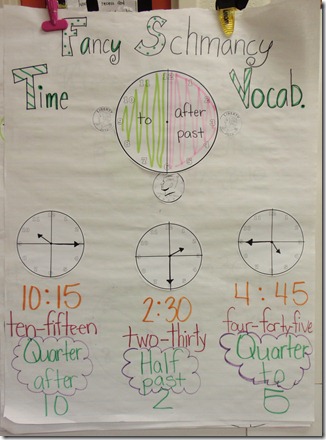 Fancy Schmancy
Time Vocab.
to
after
past
10:15
ten-fifteen
Quarter
after
10
2:30
two-thirty
Half
past
2
4:45
four-forty-five
Quarter
to
5